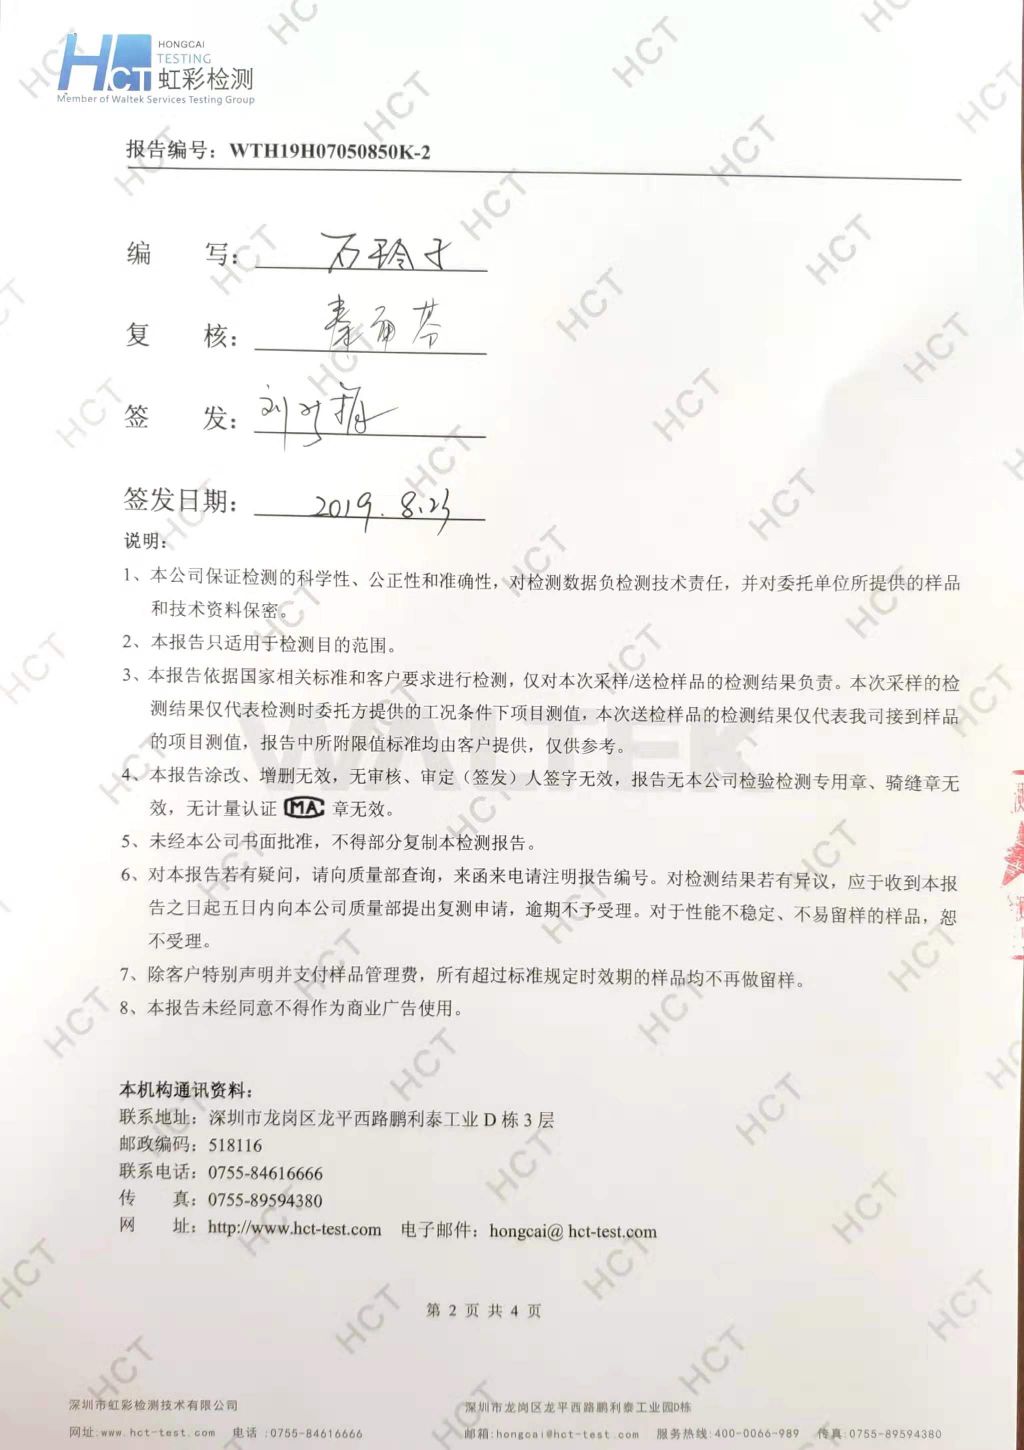 HONGCAI
TESTING
HCT 虹彩检测
Member of Waltek Services Testing Group
报告编号：WTH19H07050850K-2
编 写： 石玲子
复 核： 秦雨芬
签 发： 刘
签发日期： 2019.8.23
说明：
1、本公司保证检测的科学性、公正性和准确性，对检测数据负检测技术责任，并对委托单位所提供的样品
和技术资料保密。
2、本报告只适用于检测目的范围。
3、本报告依据国家相关标准和客户要求进行检测，仅对本次采样/送检样品的检测结果负责。本次采样的检
测结果仅代表检测时委托方提供的工况条件下项目测值，本次送检样品的检测结果仅代表我司接到样品
的项目测值，报告中所附限值标准均由客户提供，仅供参考。
4、本报告涂改、增删无效，无审核、审定（签发）人签字无效，报告无本公司检验检测专用章、骑缝章无
效，无计量认证 MA 章无效。
5、未经本公司书面批准，不得部分复制本检测报告。
6、对本报告若有疑问，请向质量部查询，来函来电请注明报告编号。对检测结果若有异议，应于收到本报
告之日起五日内向本公司质量部提出复测申请，逾期不予受理。对于性能不稳定、不易留样的样品，恕
不受理。
7、除客户特别声明并支付样品管理费，所有超过标准规定时效期的样品均不再做留样。
8、本报告未经同意不得作为商业广告使用。
WALTEK
本机构通讯资料：
联系地址：深圳市龙岗区龙平西路鹏利泰工业 D 栋 3 层
邮政编码：518116
联系电话：0755-84616666
传 真：0755-89594380
网 址：http://www.hct-test.com 电子邮件：hongcai@ hct-test.com
第 2 页 共 4 页
深圳市虹彩检测技术有限公司 深圳市龙岗区龙平西路鹏利泰工业园D栋
网址:www.hct-test.com 电话:0755-84616666 邮箱:hongcai@hct-test.com 服务热线:400-0066-989 传真:0755-89594380